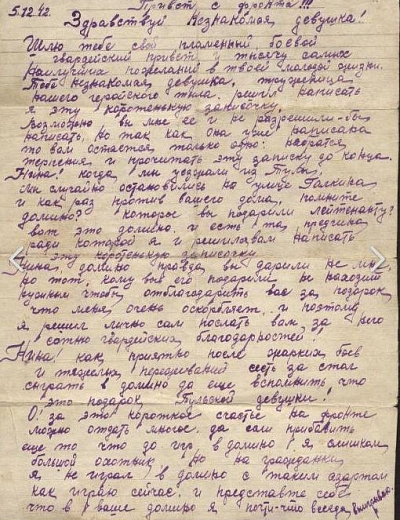 5.12.42. Привет с фронта!!!
Здравствуй незнакомая девушка!
Шлю тебе свой пламенный боевой
гвардейский привет и тысячу самых
наилучших пожеланий в твоей молодой жизни.
Тебе незнакомая девушка, труженица
нашего геройского тыла, решил написать
я эту коротенькую записочку.
Возможно вы мне её и не разрешили бы
написать. Но так как она уже написана
то вам остается только одно: набраться
терпения и прочитать эту записку до конца.
Нина! когда мы уезжали из Тулы,
мы случайно остановились на улице Галкина
и как раз против вашего дома, помните
домино? которое вы подарили лейтенанту?
вот это домино и есть та причина
ради которой я и решил вам написать
эту коротенькую записочку
Нина, домино правда вы дарили не мне
но тот, кому вы его подарили не находит
нужным чтобы отблагодарить вас за подарок
что меня очень оскорбляет, и поэтому
я решил лично сам послать вам за него
сотню гвардейских благодарностей!
Нина! как приятно после жарких боев
и тяжелых переживаний сесть за стол
сыграть в домино да еще вспомнить, что
это подарок Тульской девушки!
О! за это короткое счастье на фронте
можно отдать многое. да если прибавить
еще то что до игр в домино я слишком
большой охотник. Но на гражданке
я не играл в домино с таким азартом
как играю сейчас. и представьте себе
что в ваше домино я почти всегда выигрываю